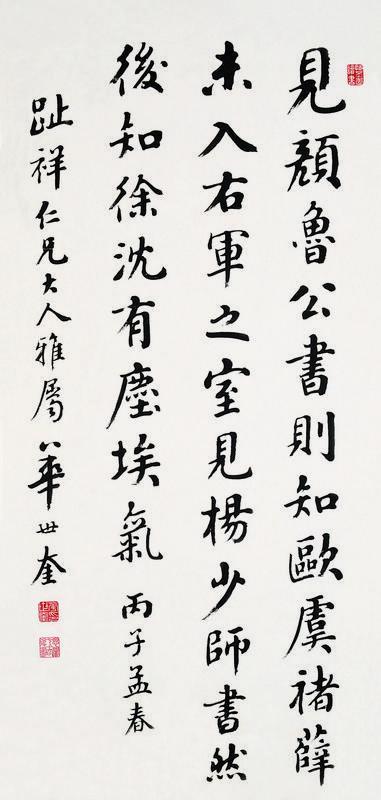 見顏魯公書則知歐虞褚薛
未入右軍之室見楊少師書然
後知徐沈有塵埃氣 丙子孟春
趾祥仁兄大人雅屬 華世奎